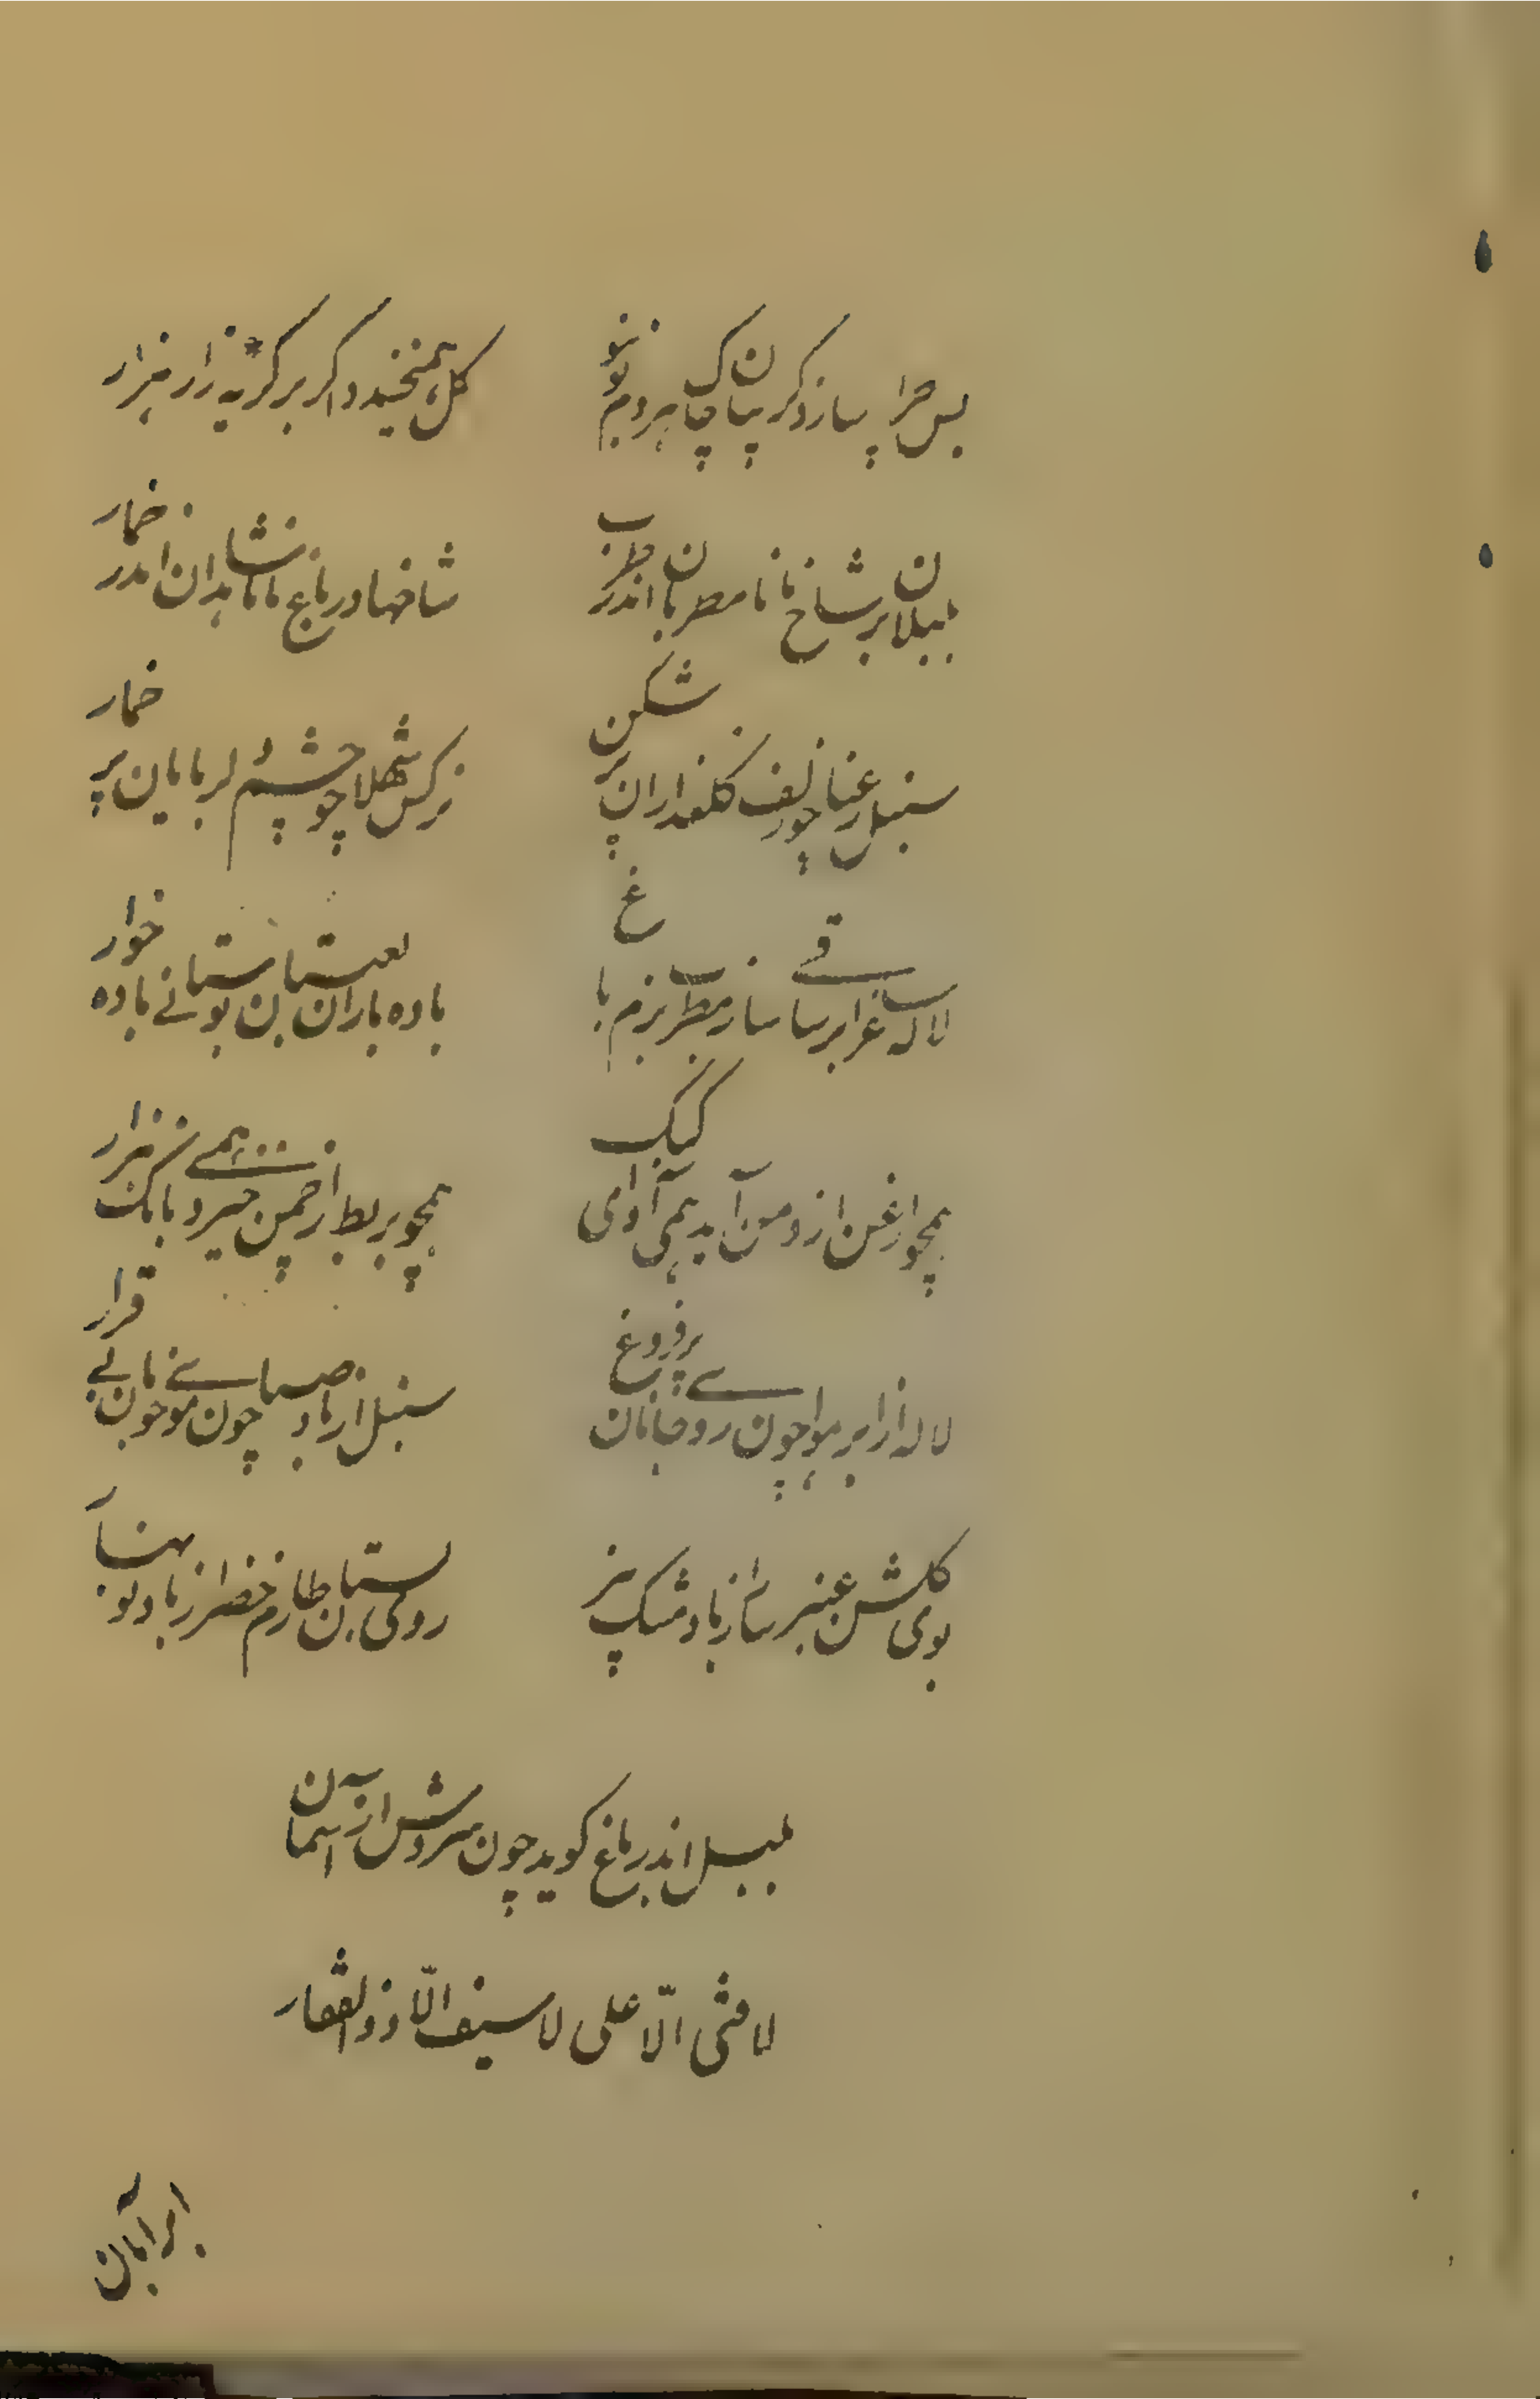 بس چرا سازد گریبان چاک هر دم نو بنو
گل همیخندد اگر بر گریه زار هزار
بلبلان بر شاخ نانا مطربان اندر طرب
شاخها در باغ مانا شاهدان اندر خمار
سنبل رعنا چو زلف گلعذاران پر شکن
نرگس شهلا چو چشم دلربایان پر خمار
لاله ساقی ابر ساغر ساز مطرب بزم باغ
باده باران لعبتان بوستانی باده خوار
همچو ارغن از دمن آید همی آوای کبک
همچو بربط از چمن خیزد همی بانک هزار
لاله از ابر هوا چون روی جانان پر فروغ
سنبل از باد صبا چون موی خوبان بی قرار
بوی گلشن عنبر سارا ز باد مشک بیز
روی بستان طارم خضرا ز باد نو بهار
بلبل اندر باغ گوید چون سروش از آسمان
لا فتی الّا علی لا سیف الّا ذوالفقار